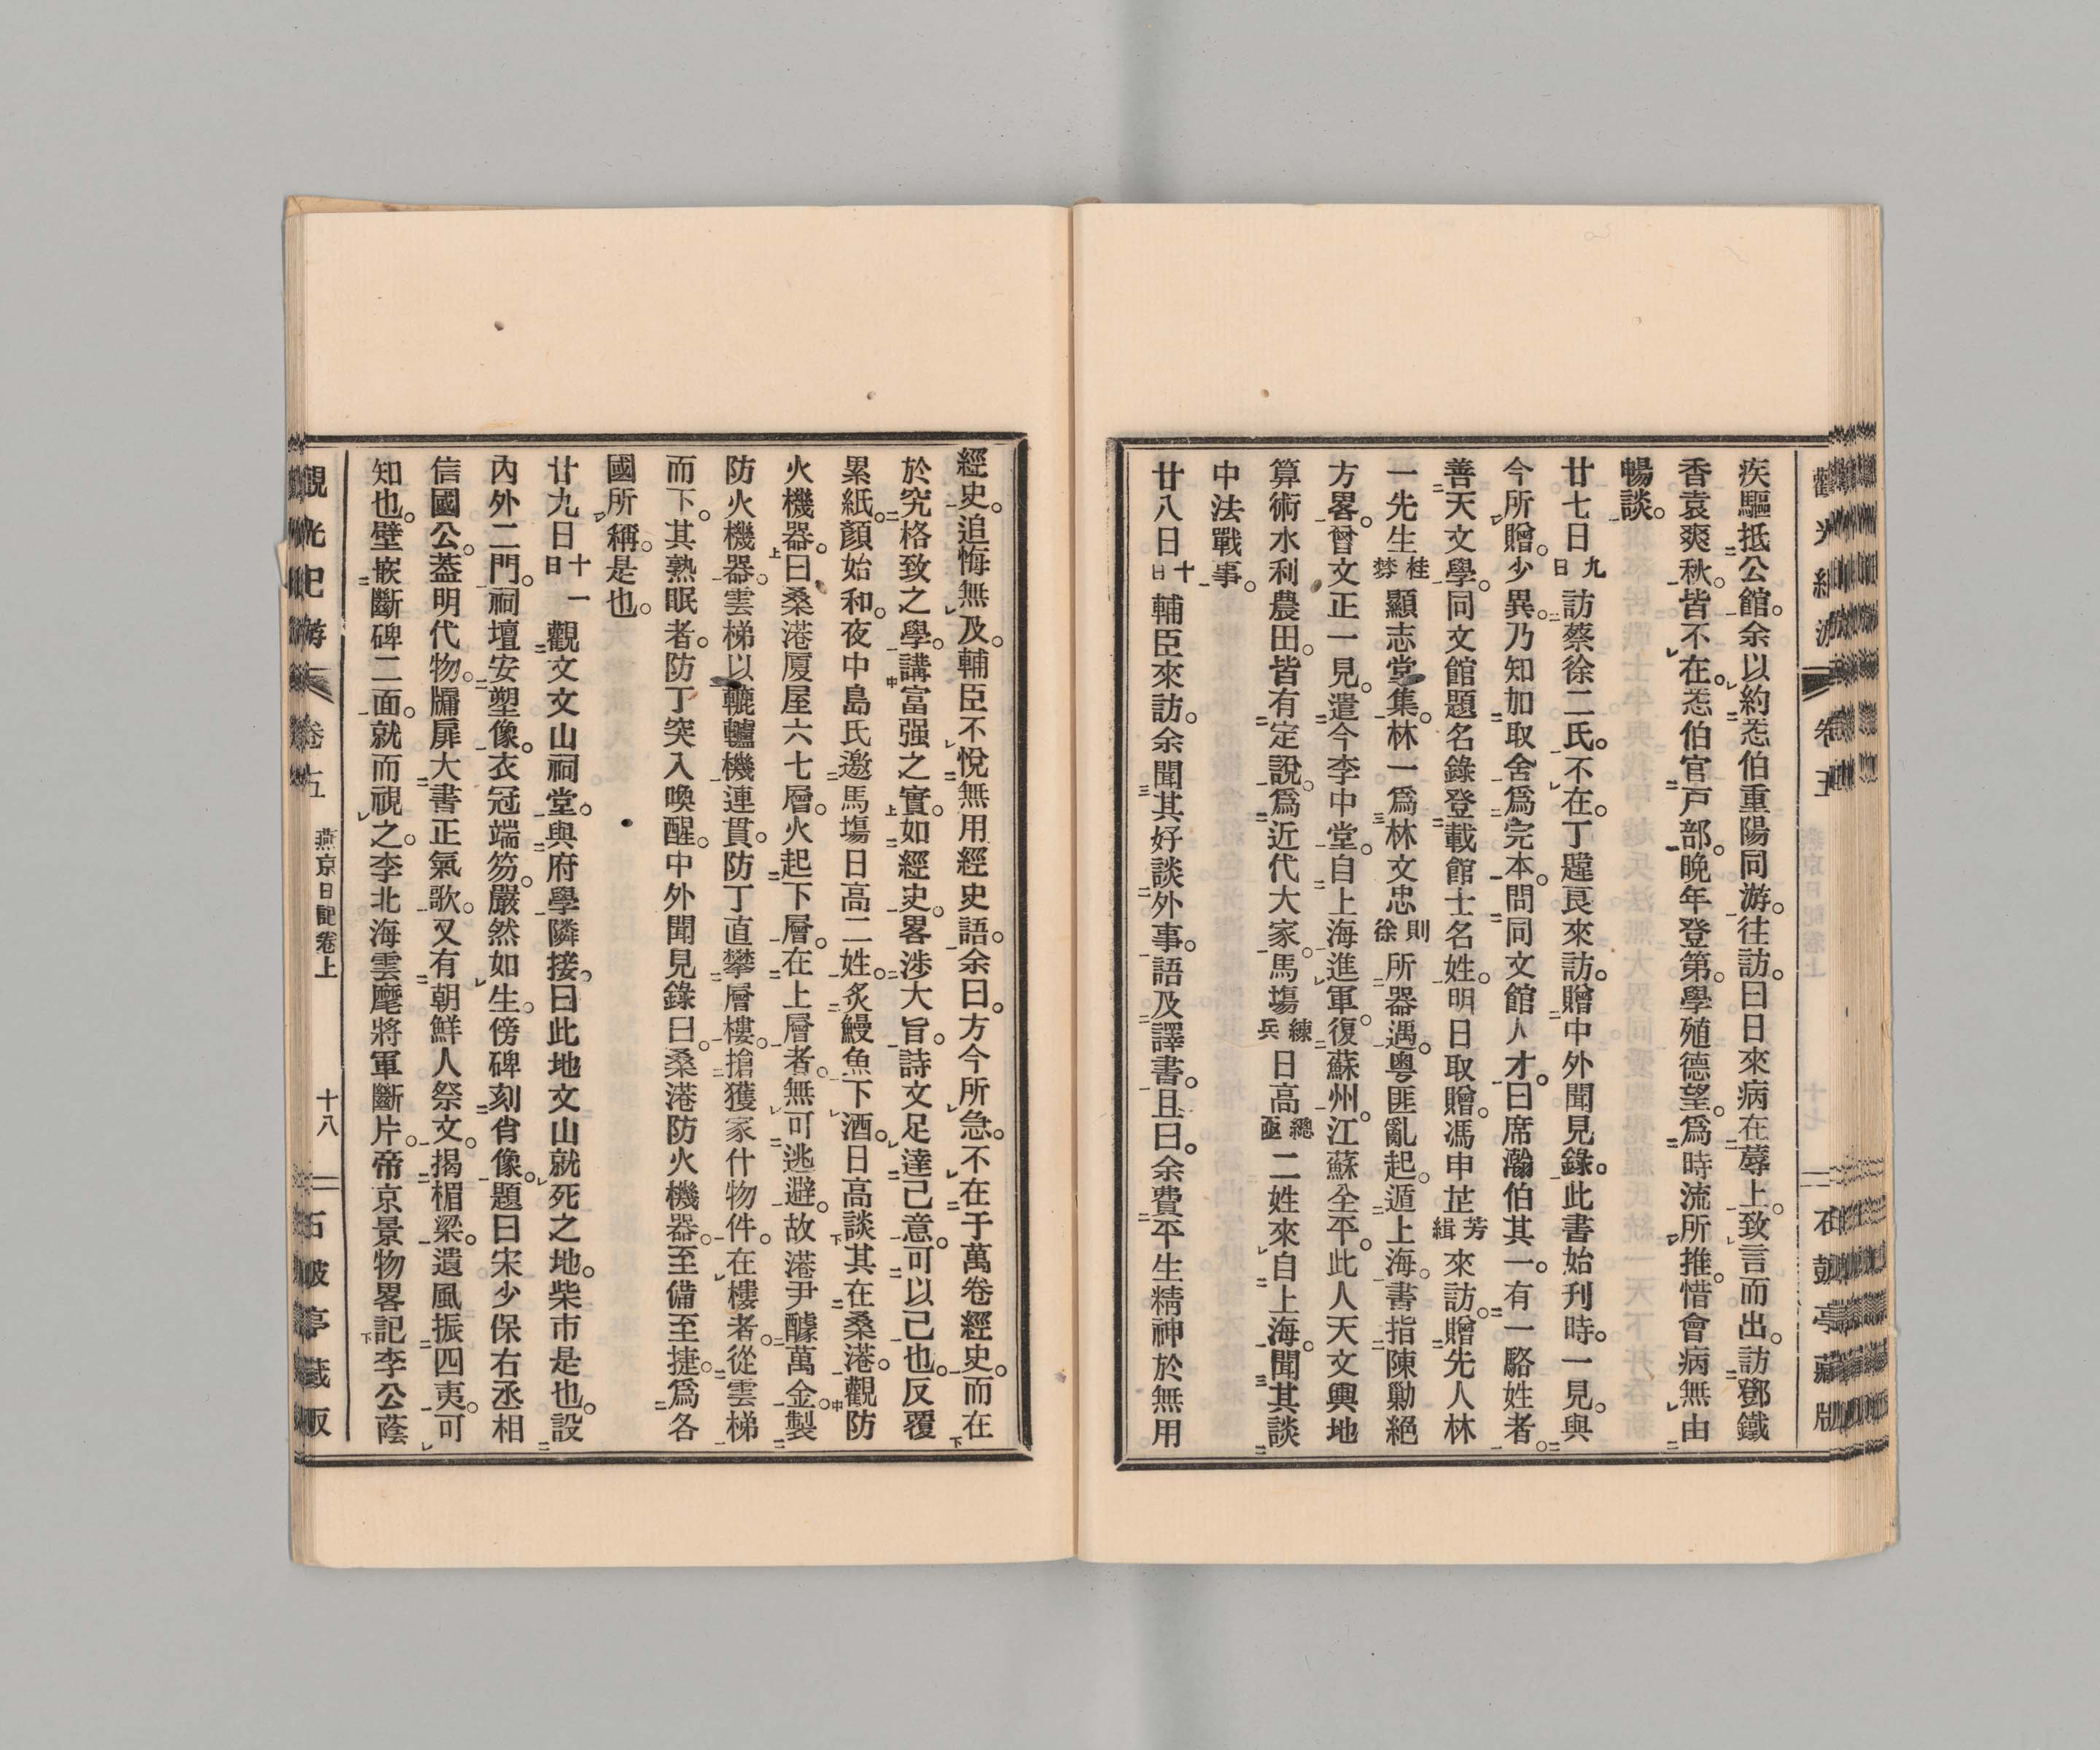 疾驅抵公館。余以約悉伯重陽同游。往訪。曰日來病在蓐上。致言而出。訪鄧鐵
香袁爽秋。皆不在。悉伯官戸部。晩年登第。學殖德望。爲時流所推。惜會病無由
暢談。
廿七日九日訪蔡徐二氏。不在。丁韙良來訪。贈中外聞見錄。此書始刊時。一見。與
今所贈。少異。乃知加取舍爲完本。問同文館人才。曰席瀚伯其一。有一駱姓者。
善天文學。同文館題名錄登載館士名姓。明日取贈。馮申芷芳緝來訪。贈先人林
一先生桂芬顯志堂集。林一爲林文忠則徐所器遇。粤匪亂起。遁上海。書指陳勦絕
方畧。曾文正一見。遣今李中堂。自上海進軍。復蘇州。江蘇全平。此人天文輿地
算術水利農田。皆有定說。爲近代大家。馬塲練兵日高總亟二姓來自上海。聞其談
中法戰事。
廿八日十日輔臣來訪。余聞其好談外事。語及譯書。且曰。余費平生精神於無用
經史。追悔無及。輔臣不悅無用經史語。余曰。方今所急。不在于萬卷經史。而在
於究格致之學。講富强之實。如經史。畧渉大旨。詩文足達己意。可以已也。反覆
累紙。顏始和。夜中島氏邀馬塲日高二姓。炙鰻魚下酒。日高談其在桑港。觀防
火機器。曰桑港厦屋六七層。火起下層。在上層者。無可逃避。故港尹醵萬金。製
防火機器。雲梯以轆轤機連貫。防丁直攀層樓。搶獲家什物件。在樓者。從雲梯
而下。其熟眠者。防丁突入喚醒。中外聞見錄曰。桑港防火機器。至備至捷。爲各
國所稱。是也。
廿九日十一日觀文文山祠堂。與府學隣接。曰此地文山就死之地。柴市是也。設
內外二門。祠壇安塑像。衣冠端笏。嚴然如生。傍碑刻肖像。題曰宋少保右丞相
信國公。葢明代物。牖扉大書正氣歌。又有朝鮮人祭文。揭楣梁。遺風振四夷。可
知也。壁嵌斷碑二面。就而視之。李北海雲麾將軍斷片。帝京景物畧記李公蔭
觀光紀游 卷五 燕京日記卷上 十八